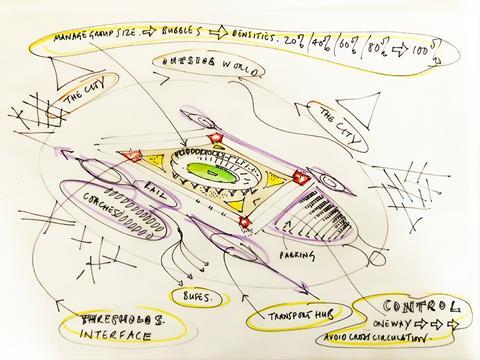 MANAGE GROUP SIZE. ⇨ BUBBLES ⇨ DENSITIES. 20% /40% /60% /80% ⇨ 100%
OUTSIDE WORLD
THE CITY
THE CITY
RAIL
COACHES
PARKING
BUSES.
TRANSPORT HUB
THRESHOLDS.
INTERFACE
CONTROL
ONE WAY ⇨ ⇨ ⇨
AVOID CROSS CIRCULATION.